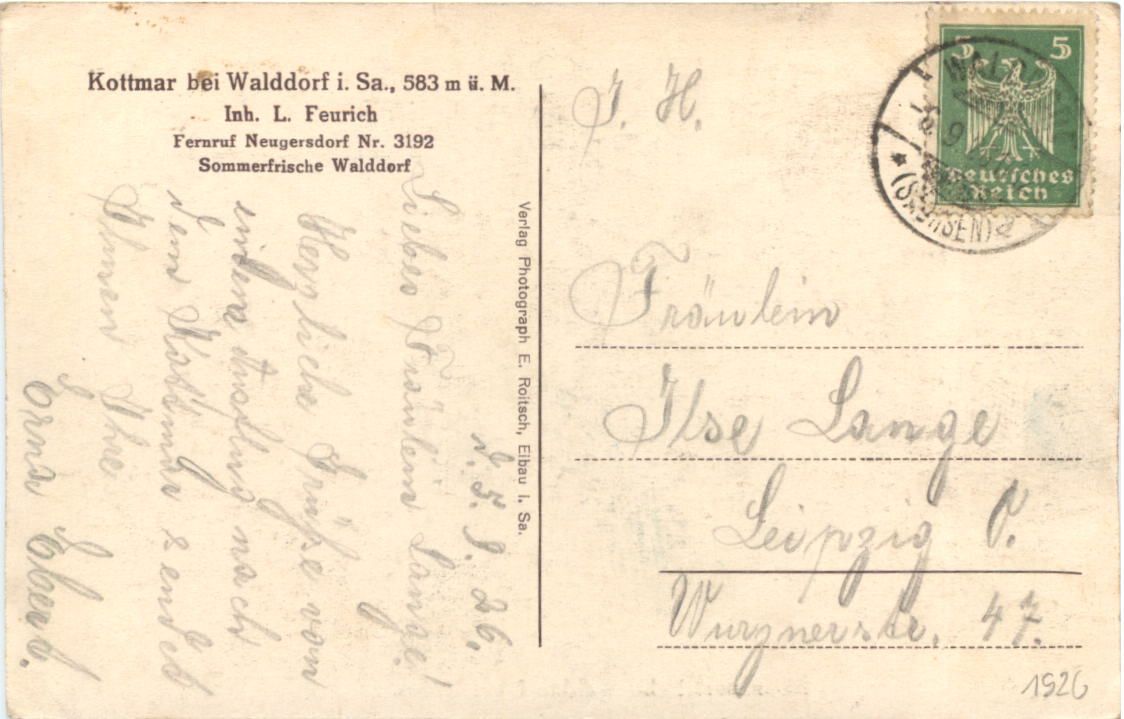 Kottmar bei Walddorf i. Sa., 583 m ü. M.
Inh. L. Feurich
Fernruf Neugersdorf Nr. 3192
Sommerfrische Walddorf
d. 5. 9. 26.
Liebes Fräulein Lange!
Herzliche Grüße von
einem Ausflug nach
dem Kottmar sendet
Ihnen Ihre
Erna
Verlag Photograph E. Roitsch, Eibau i. Sa.
5 5
Deutsches
Reich
(SACHSEN)
I. H.
Fräulein
Ilse Lange
Leipzig O.
Wurznerstr. 47.
1926